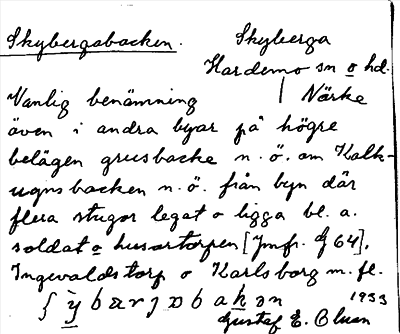 Skybergabacken.
Skyberga
Hardemo sn o hd.
Vanlig benämning | Närke
även i andra byar på högre
belägen grusbacke n.ö. om Kalk-
ugnsbacken n.ö. från byn där
flera stugor legat o ligga bl. a.
soldat o husartorpen [Jmfr. g 64],
Ingevaldstorp o Karlsborg m. fl.
1933
Gustaf E. Olsson